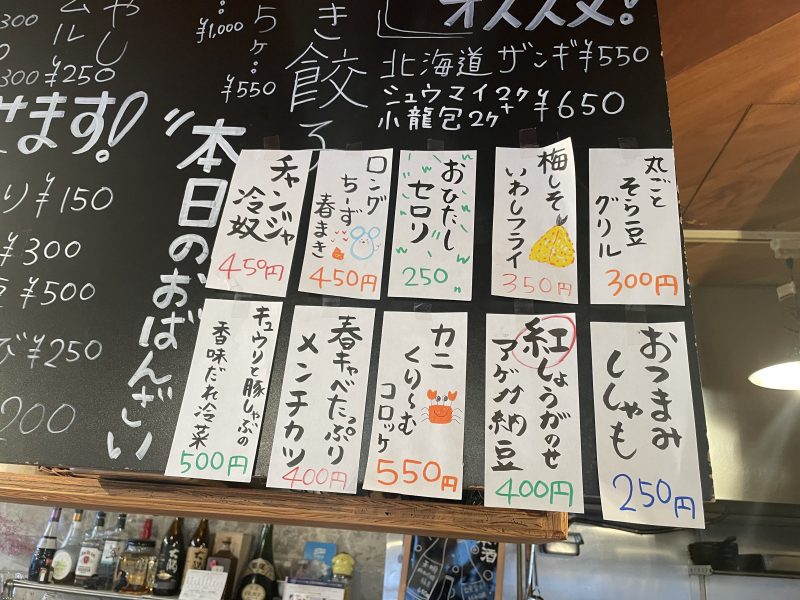 オススメ!
北海道 ザンギ ¥550
シュウマイ2ケ+
小龍包2ケ
¥650
き餃子
5ケ:
¥550
¥1,000
300
300
¥250
せます!
り ¥150
¥300
¥500
び ¥250
200
"本日のおばんざい
丸ごと
そら豆
グリル
300円
梅しそ
いわしフライ
350円
おひたし
セロリ
250
ロング
ちーず
春まき
450円
チャンジャ
冷奴
450円
おつまみ
ししゃも
250円
紅しょうがのせ
アゲ納豆
400円
カニ
くり〜む
コロッケ
550円
春キャベたっぷり
メンチカツ
400円
キュウリと豚しゃぶの
香味だれ冷菜
500円